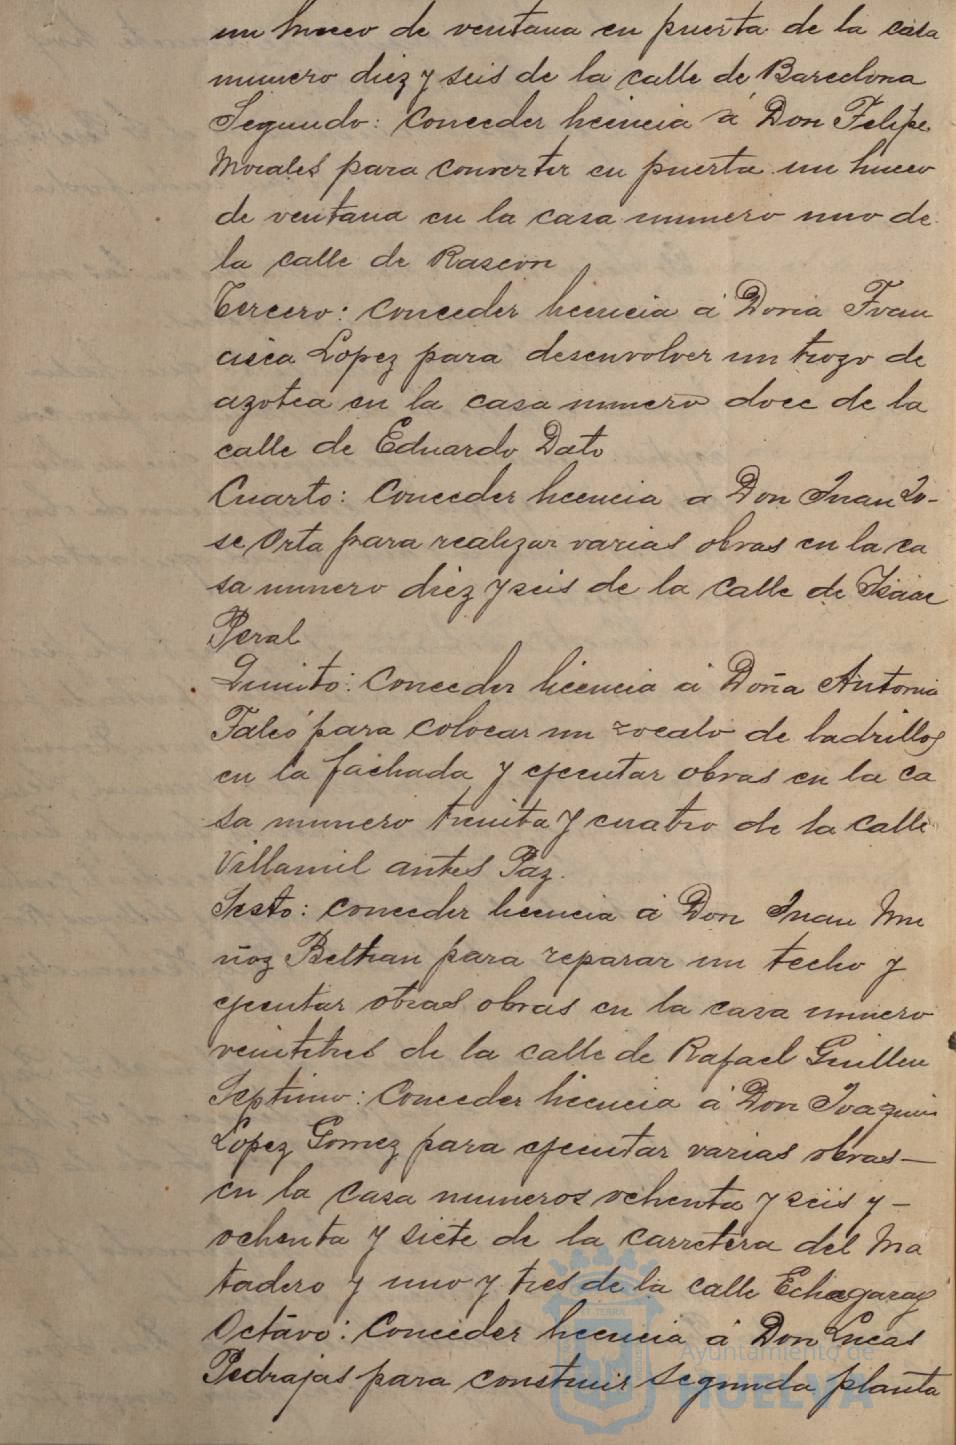 un hueco de ventana en puerta de la casa
numero diez y seis de la calle de Barcelona
Segundo: Conceder licencia á Don Felipe
Morales para convertir en puerta un hueco
de ventana en la casa numero uno de
la calle de Rascon
Tercero: Conceder licencia á Doña Fran
cisca Lopez para desenvolver un trozo de
azotea en la casa numero doce de la
calle de Eduardo Dato
Cuarto: Conceder licencia a Don Juan Jo-
se Orta para realizar varias obras en la ca
sa numero diez y seis de la calle de Isaac
Peral
Quinto: Conceder licencia á Doña Antonia
Falcó para colocar un zocalo de ladrillos
en la fachada y ejecutar obras en la ca
sa numero treinta y cuatro de la calle
Villamil antes Paz.
Sesto: Conceder licencia á Don Juan Mu
ñoz Beltran para reparar un techo y
ejecutar otras obras en la casa numero
veintitres de la calle de Rafael Guillen
Septimo: Conceder licencia á Don Joaquin
Lopez Gomez para ejecutar varias obras—
en la casa numeros ochenta y seis y—
ochenta y siete de la carretera del Ma
tadero y uno y tres de la calle Echegaray
Octavo: Conceder licencia á Don Lucas
Pedrajas para construir segunda planta
Ayuntamiento de
HUELVA